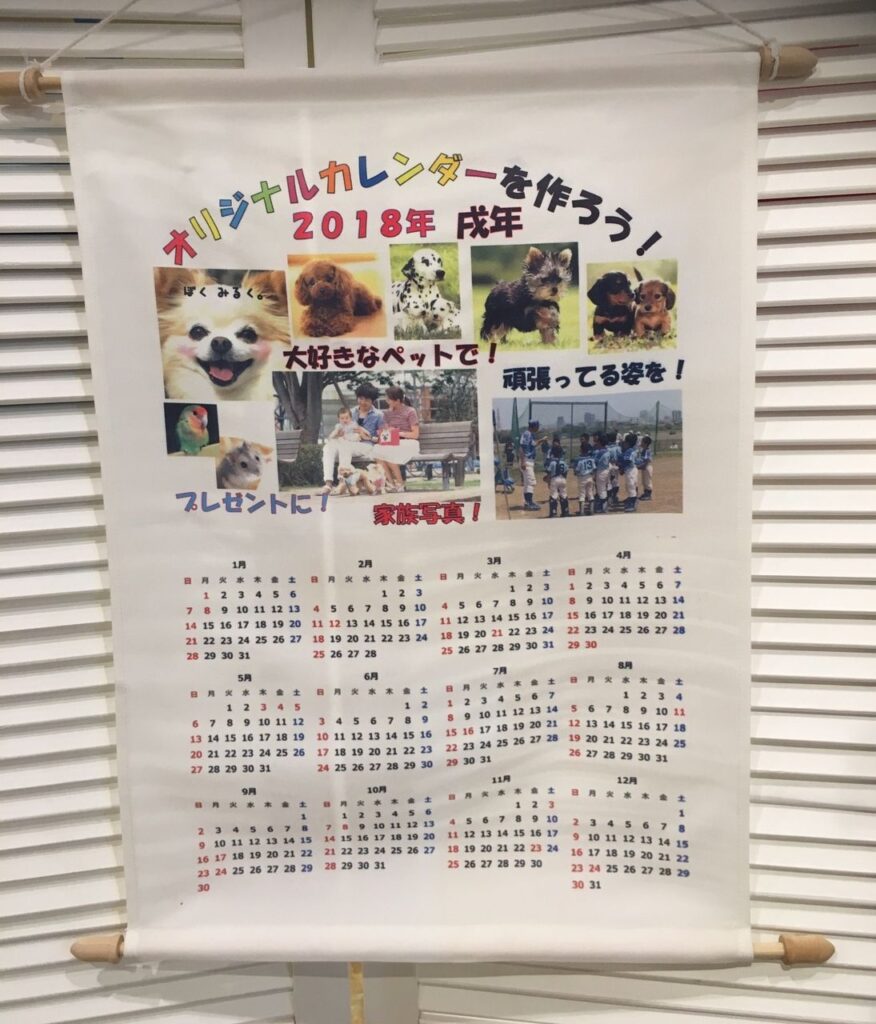 オリジナルカレンダーを作ろう!
2018年 戌年
ぼく みるく。
大好きなペットで!
頑張ってる姿を!
プレゼントに!
家族写真!
1月
日 月 火 水 木 金 土
1 2 3 4 5 6
7 8 9 10 11 12 13
14 15 16 17 18 19 20
21 22 23 24 25 26 27
28 29 30 31
2月
日 月 火 水 木 金 土
1 2 3
4 5 6 7 8 9 10
11 12 13 14 15 16 17
18 19 20 21 22 23 24
25 26 27 28
3月
日 月 火 水 木 金 土
1 2 3
4 5 6 7 8 9 10
11 12 13 14 15 16 17
18 19 20 21 22 23 24
25 26 27 28 29 30 31
4月
日 月 火 水 木 金 土
1 2 3 4 5 6 7
8 9 10 11 12 13 14
15 16 17 18 19 20 21
22 23 24 25 26 27 28
29 30
5月
日 月 火 水 木 金 土
1 2 3 4 5
6 7 8 9 10 11 12
13 14 15 16 17 18 19
20 21 22 23 24 25 26
27 28 29 30 31
6月
日 月 火 水 木 金 土
1 2
3 4 5 6 7 8 9
10 11 12 13 14 15 16
17 18 19 20 21 22 23
24 25 26 27 28 29 30
7月
日 月 火 水 木 金 土
1 2 3 4 5 6 7
8 9 10 11 12 13 14
15 16 17 18 19 20 21
22 23 24 25 26 27 28
29 30 31
8月
日 月 火 水 木 金 土
1 2 3 4
5 6 7 8 9 10 11
12 13 14 15 16 17 18
19 20 21 22 23 24 25
26 27 28 29 30 31
9月
日 月 火 水 木 金 土
1
2 3 4 5 6 7 8
9 10 11 12 13 14 15
16 17 18 19 20 21 22
23 24 25 26 27 28 29
30
10月
日 月 火 水 木 金 土
1 2 3 4 5 6
7 8 9 10 11 12 13
14 15 16 17 18 19 20
21 22 23 24 25 26 27
28 29 30 31
11月
日 月 火 水 木 金 土
1 2 3
4 5 6 7 8 9 10
11 12 13 14 15 16 17
18 19 20 21 22 23 24
25 26 27 28 29 30
12月
日 月 火 水 木 金 土
1
2 3 4 5 6 7 8
9 10 11 12 13 14 15
16 17 18 19 20 21 22
23 24 25 26 27 28 29
30 31